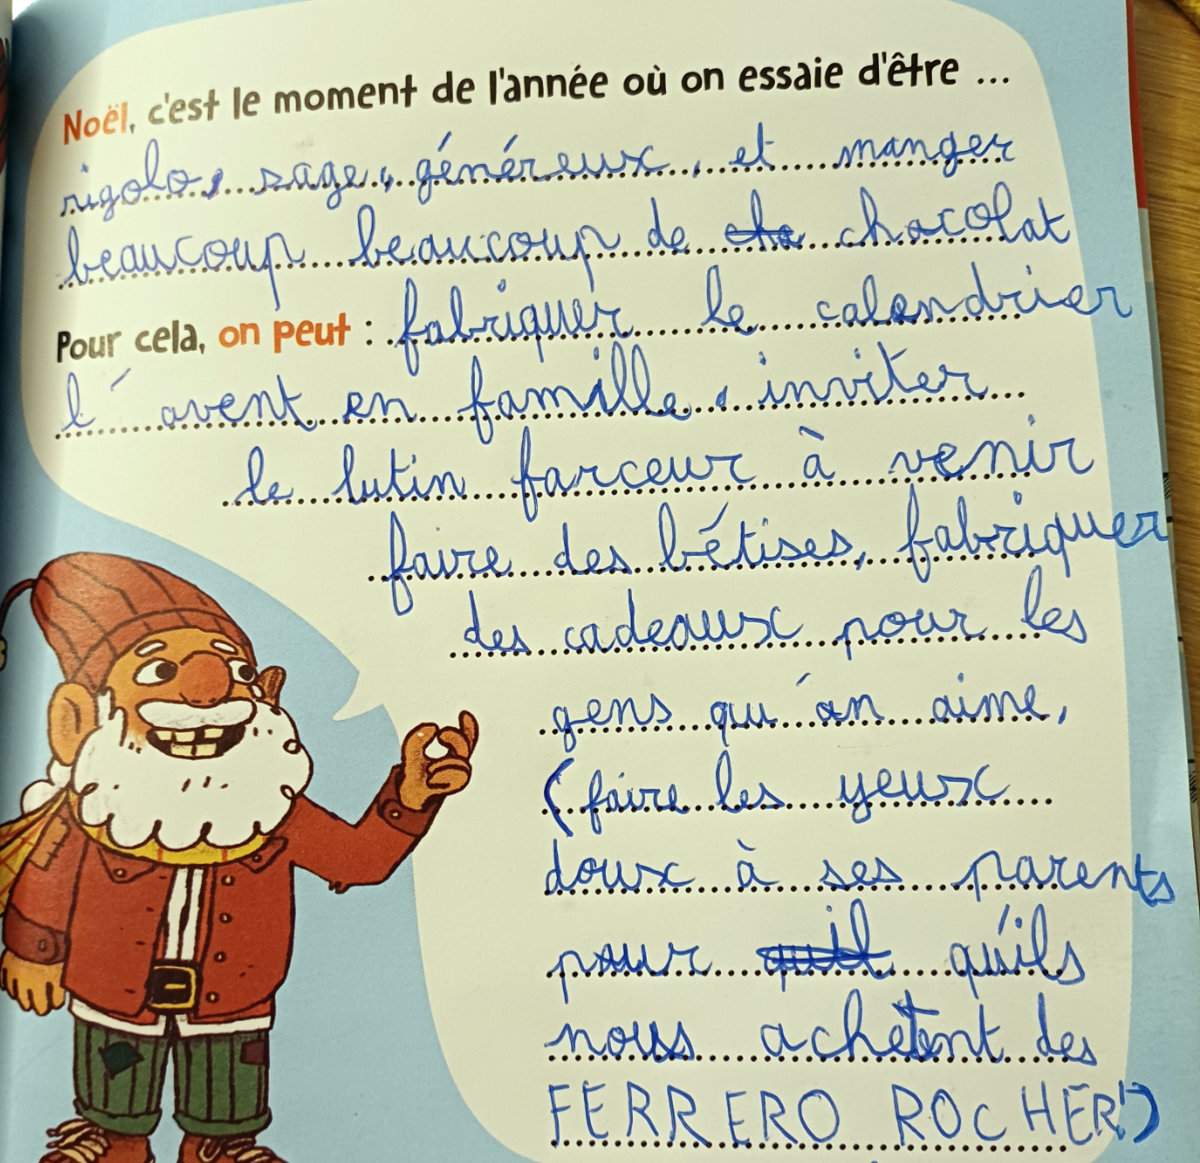 Noël, c'est le moment de l'année où on essaie d'être ...
rigolo, sage, généreux, et manger
beaucoup beaucoup de cho chocolat
Pour cela, on peut : fabriquer le calendrier
l'avent en famille, inviter
le lutin farceur à venir
faire des bétises, fabriquer
des cadeaux pour les
gens qu'on aime,
(faire les yeux
doux à ses parents
pour quil qu'ils
nous achètent des
FERRERO ROCHER!)